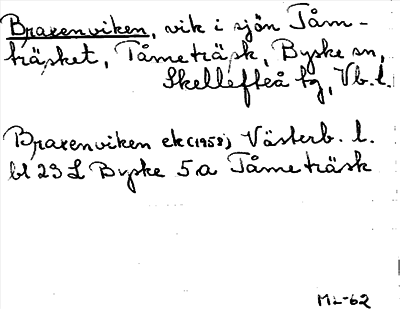 Braxenviken, vik i sjön Tåm-
träsket, Tåmeträsk, Byske sn,
Skellefteå tg, Vb. l.
Braxenviken ek (1958) Västerb. l.
bl 23 L Byske 5 a Tåmeträsk
ML-62